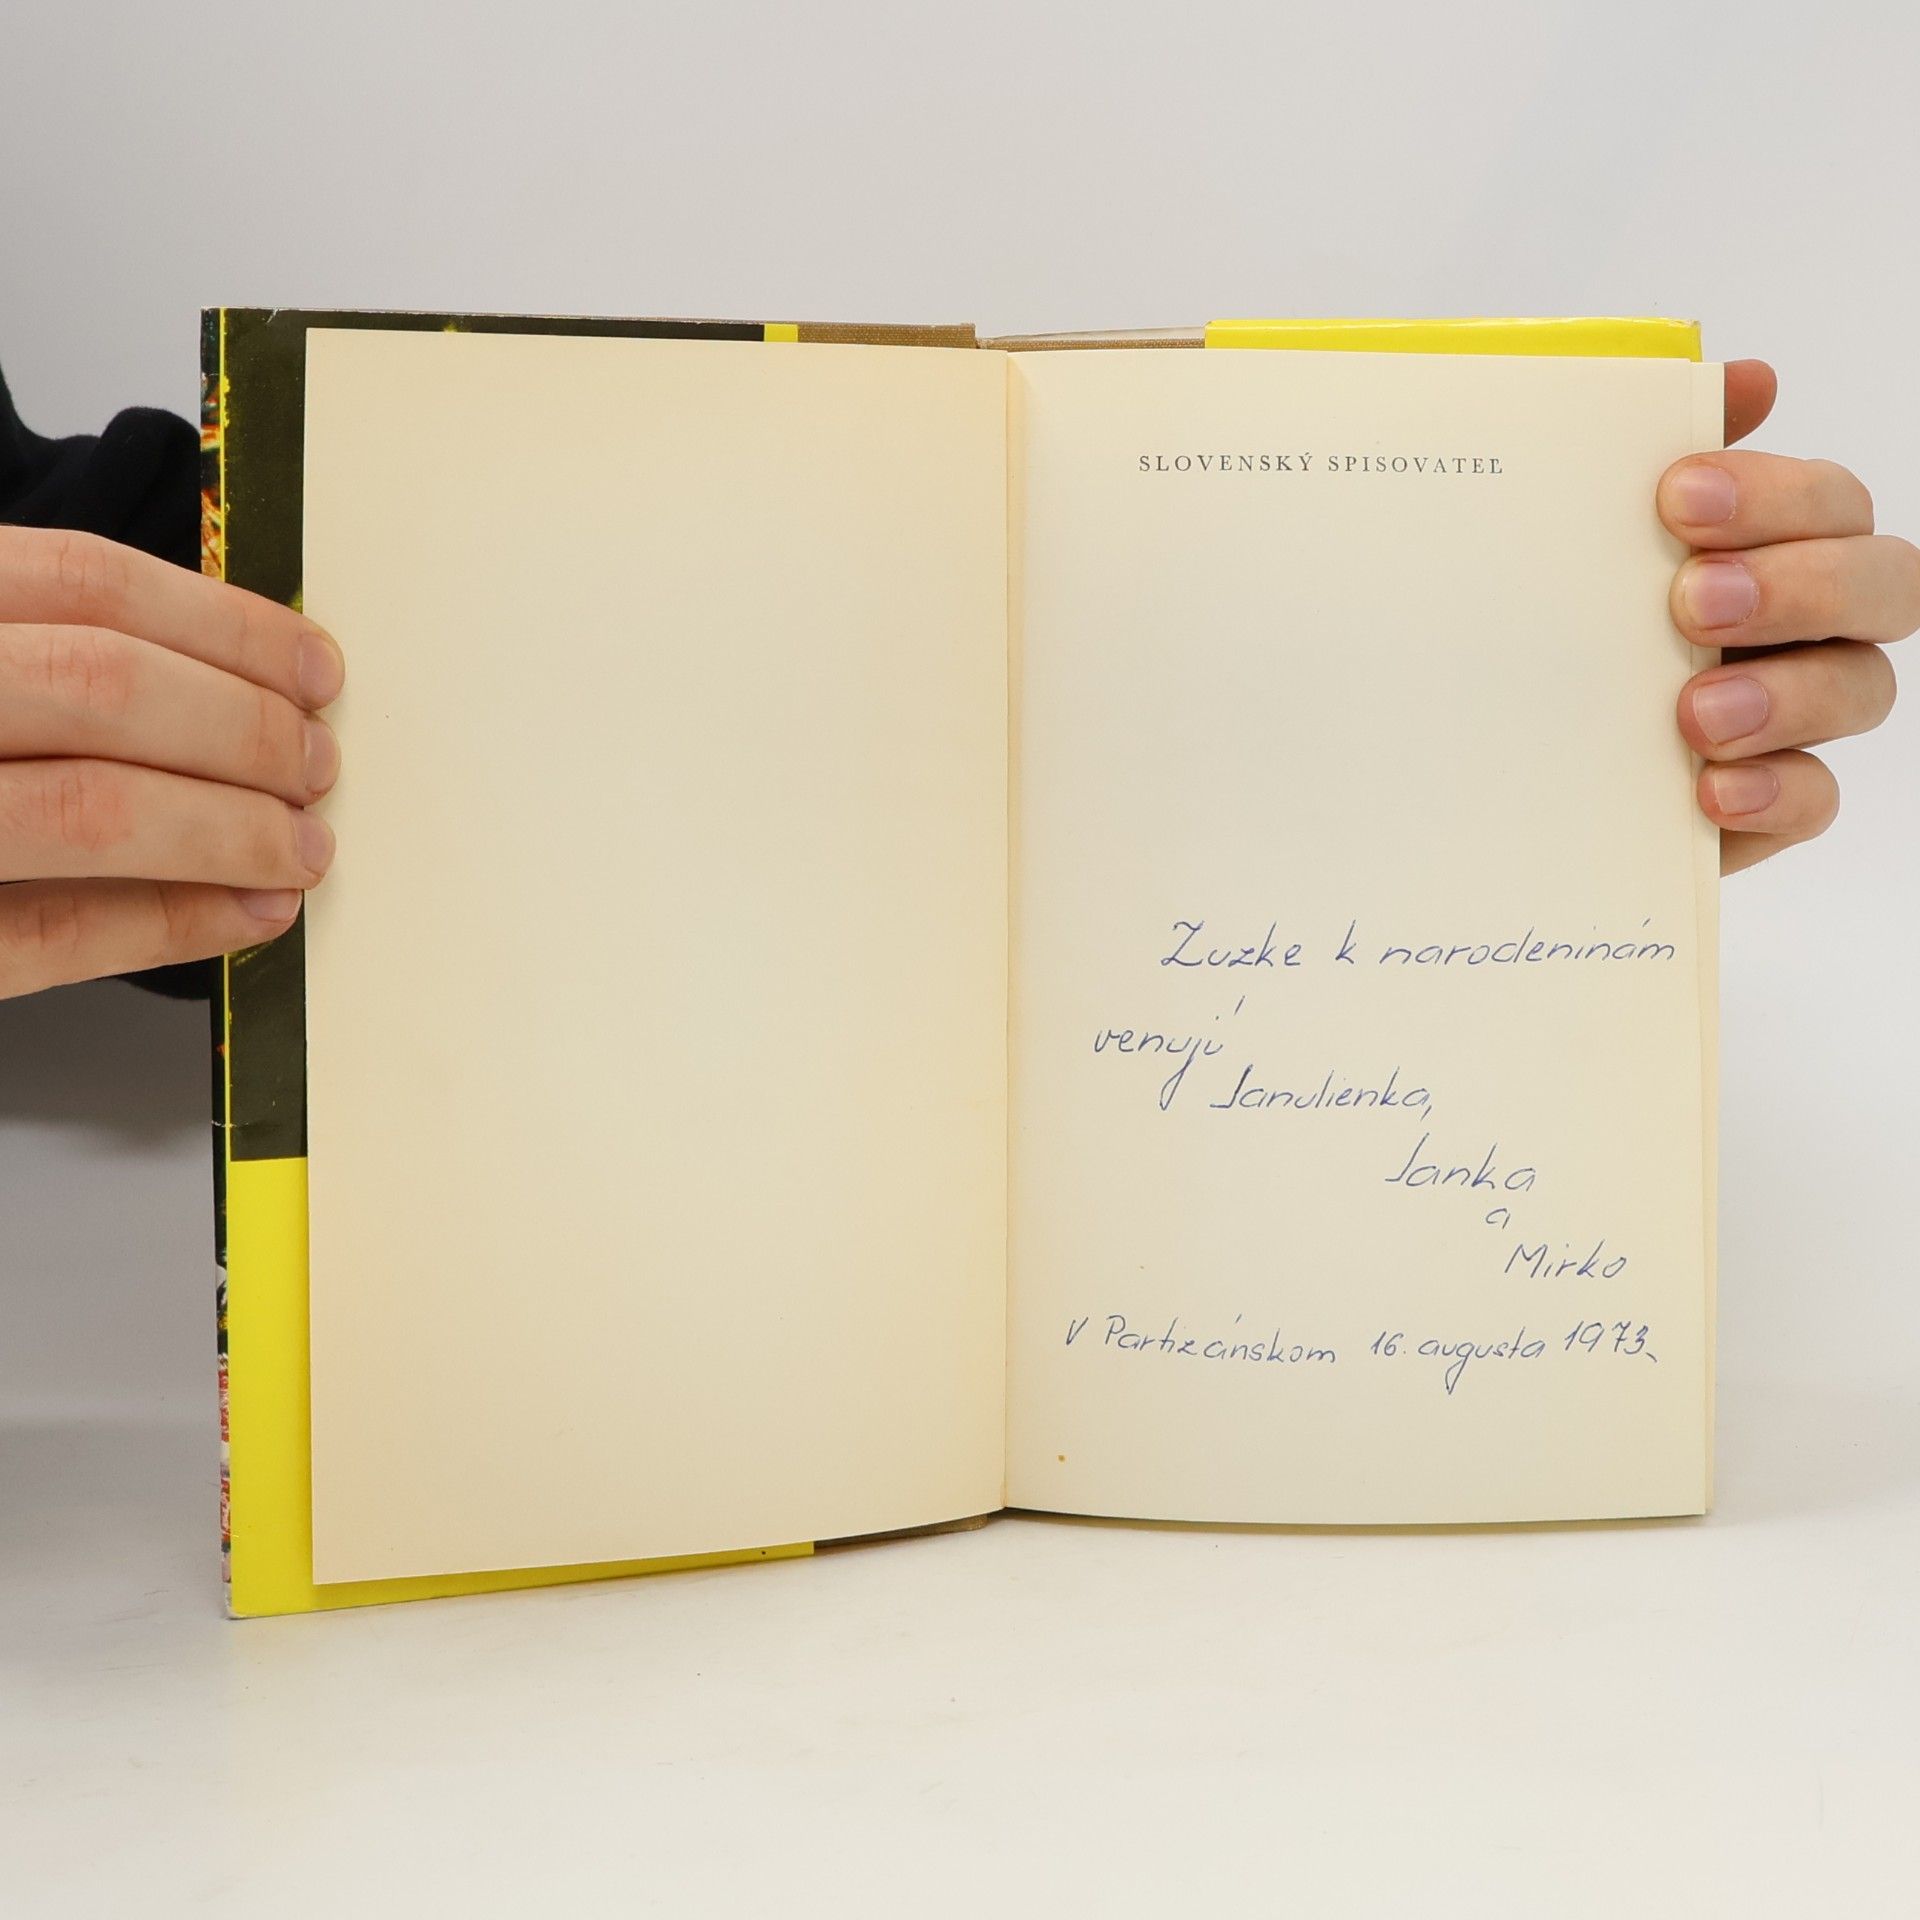 SLOVENSKÝ SPISOVATEĽ
Zuzke k narodeninám
venujú
Janulienka,
Janka
a
Mirko
V Partizánskom 16. augusta 1973.